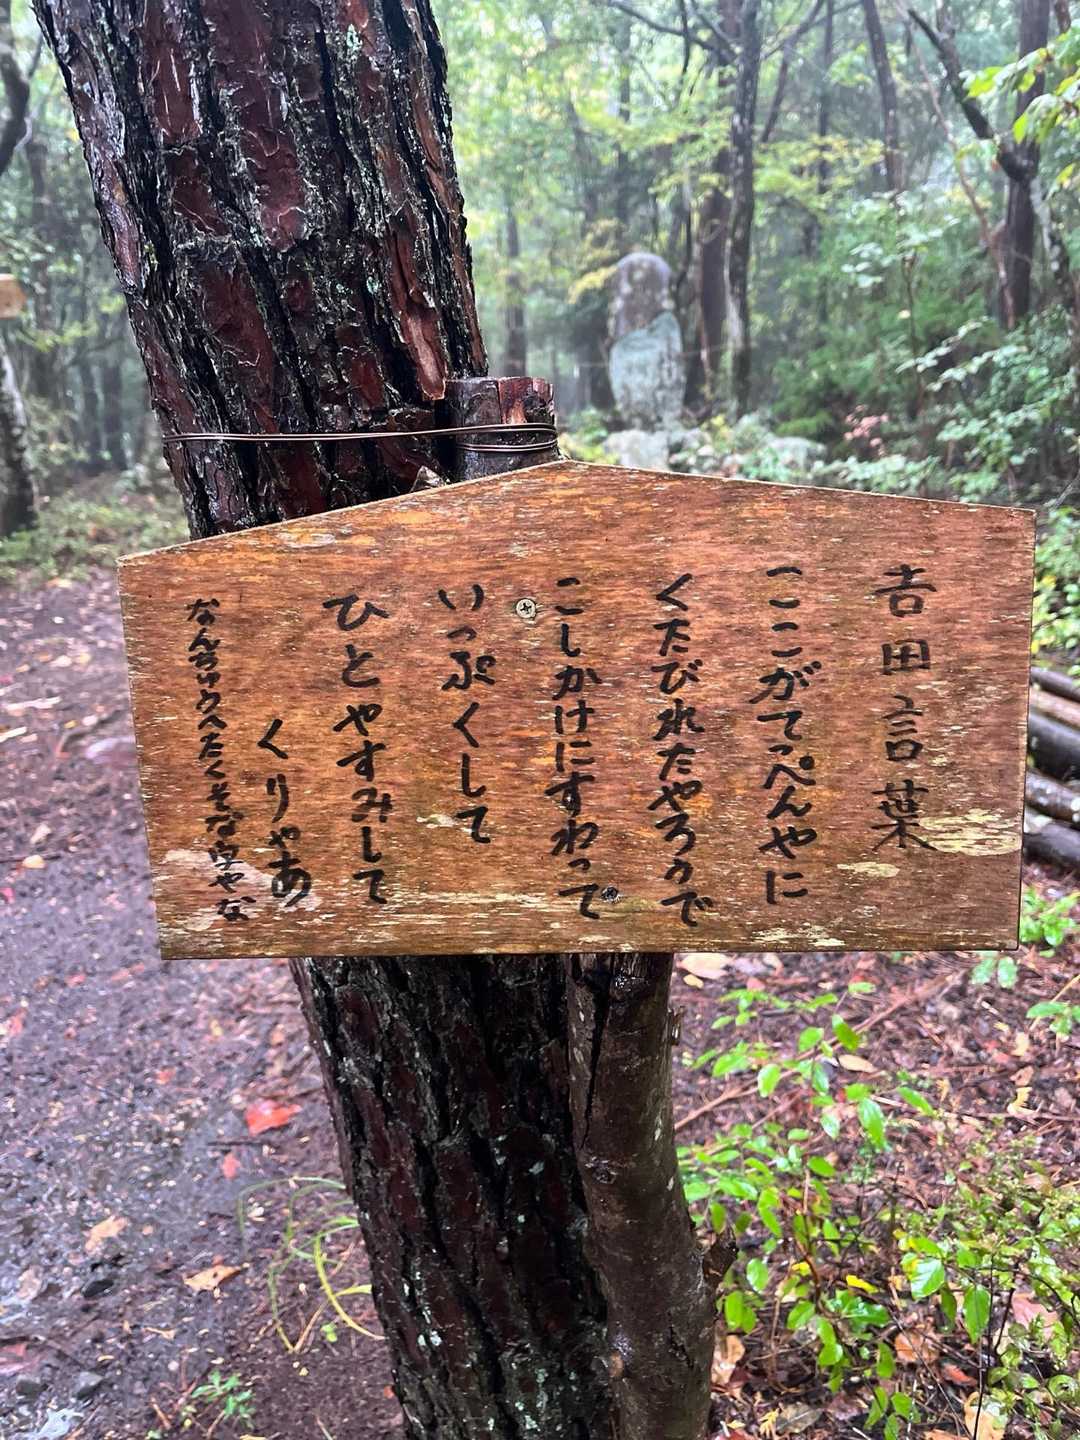 吉田言葉
ここがてっぺんやに
くたびれたやろうで
こしかけにすわって
いっぷくして
ひとやすみして
くりやあ
なんちゅうへたくそな字やな